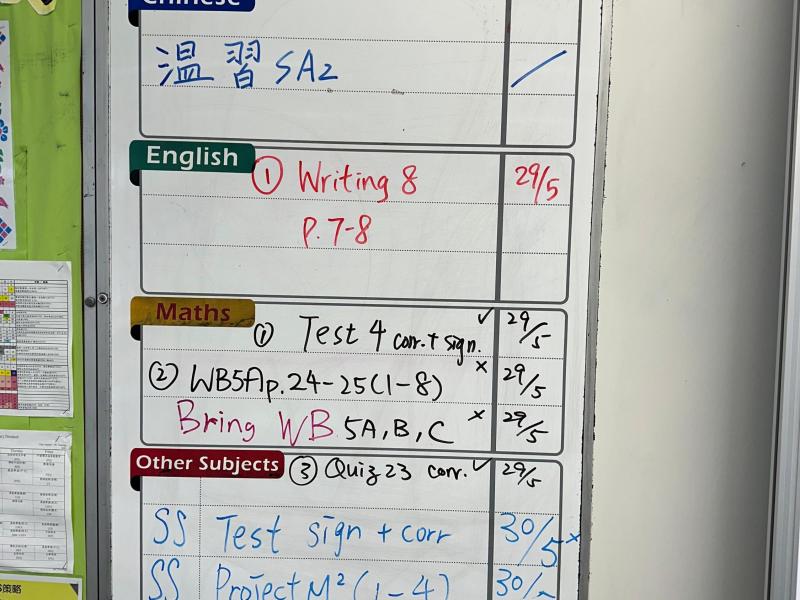 Chinese
温習 SA2 /
English
① Writing 8 29/5
P.7-8
Maths
① Test 4 corr. + sign. ✓ 29/5
② WB5A p.24-25 (1-8) × 29/5
Bring WB 5A, B, C × 29/5
Other Subjects ③ Quiz 23 corr. ✓ 29/5
SS Test sign + corr 30/5 ×
SS Project M² (1-4) 30/
策略